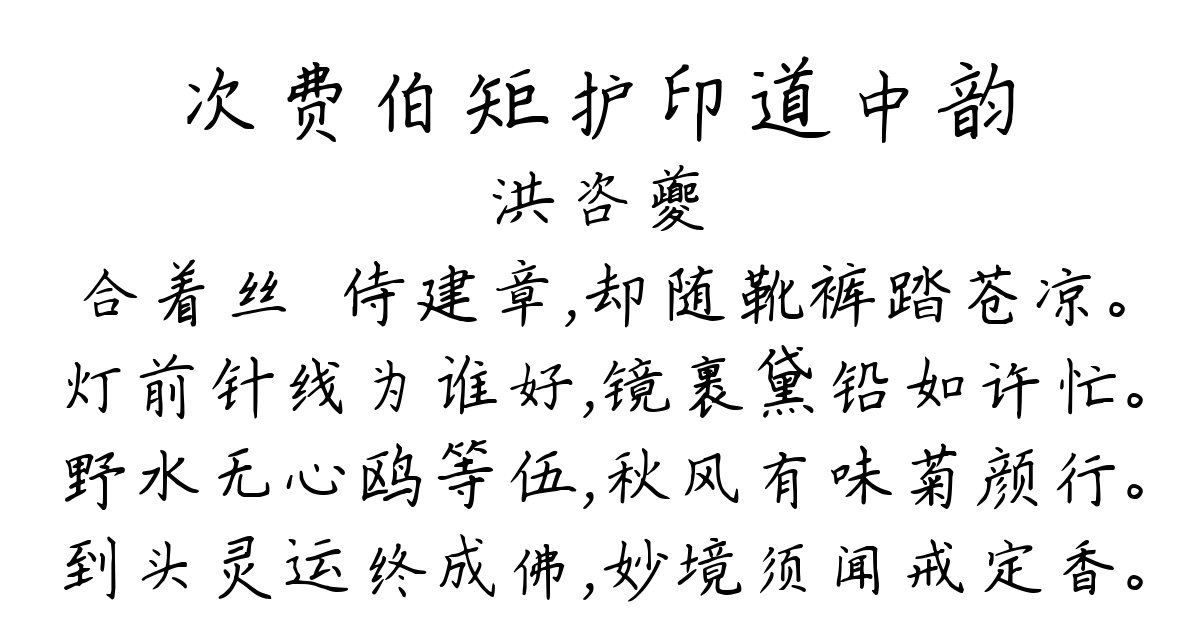 次费伯矩护印道中韵
洪咨夔
合着丝 侍建章,却随靴裤踏苍凉。
灯前针线为谁好,镜裹黛铅如许忙。
野水无心鸥等伍,秋风有味菊颜行。
到头灵运终成佛,妙境须闻戒定香。